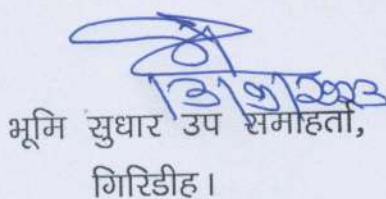 भूमि सुधार उप समाहर्ता,
गिरिडीह।